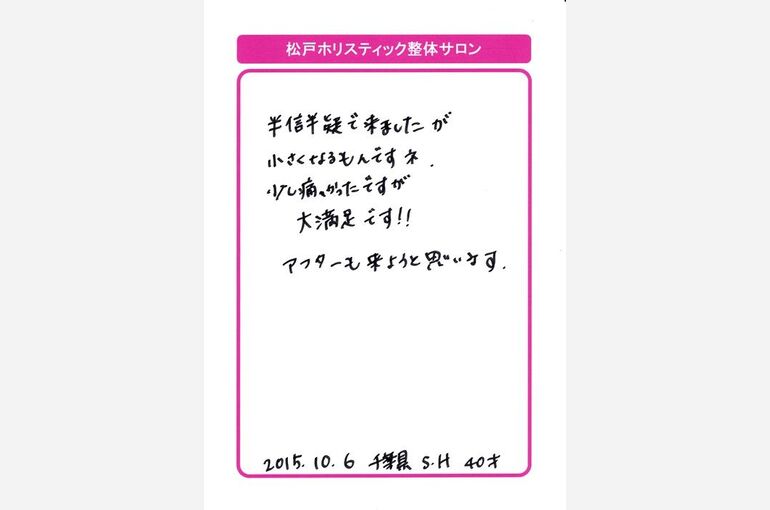 松戸ホリスティック整体サロン
半信半疑で来ましたが
小さくなるもんですネ.
少し痛かったですが
大満足です!!
アフターも来ようと思います.
2015.10.6 千葉県 S.H 40才